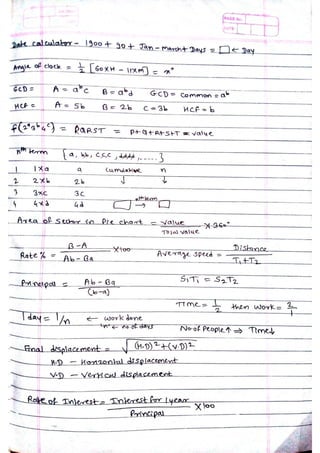 Date calculator - 1900 + 90 + Jan - March + Days = □ ← Day
Angle of clock = 1/2 [60×H - 11×M] = x°
GCD = A = a^b c B = a^b d GCD = common = a^b
HCF = A = 5b B = 2b C = 3b HCF = b
f(2^a 3^b 4^c) = PQRST = P+Q+R+S+T = value
nth term [a, bb, ccc, dddd, .....]
1 1×a a cumulative n
2 2×b 2b ↓ ↓
3 3×c 3c nth term
4 4×d 4d □ → □
Area of sector in Pie chart = value / Total value × 360°
Rate % = B-A / Ab-Ba × 100 Average speed = Distance / T1+T2
Principal = Ab-Ba / (b-a) S1T1 = S2T2
Time = 1/2 then work = 2/1
1 day = 1/n ← work done
"n" ← no of days No of People ↑ ⇒ Time↓
Final displacement = √(H.D)²+(V.D)²
H.D - Horizontal displacement
V.D - Vertical displacement
Rate of Interest = Interest for 1 year / Principal × 100